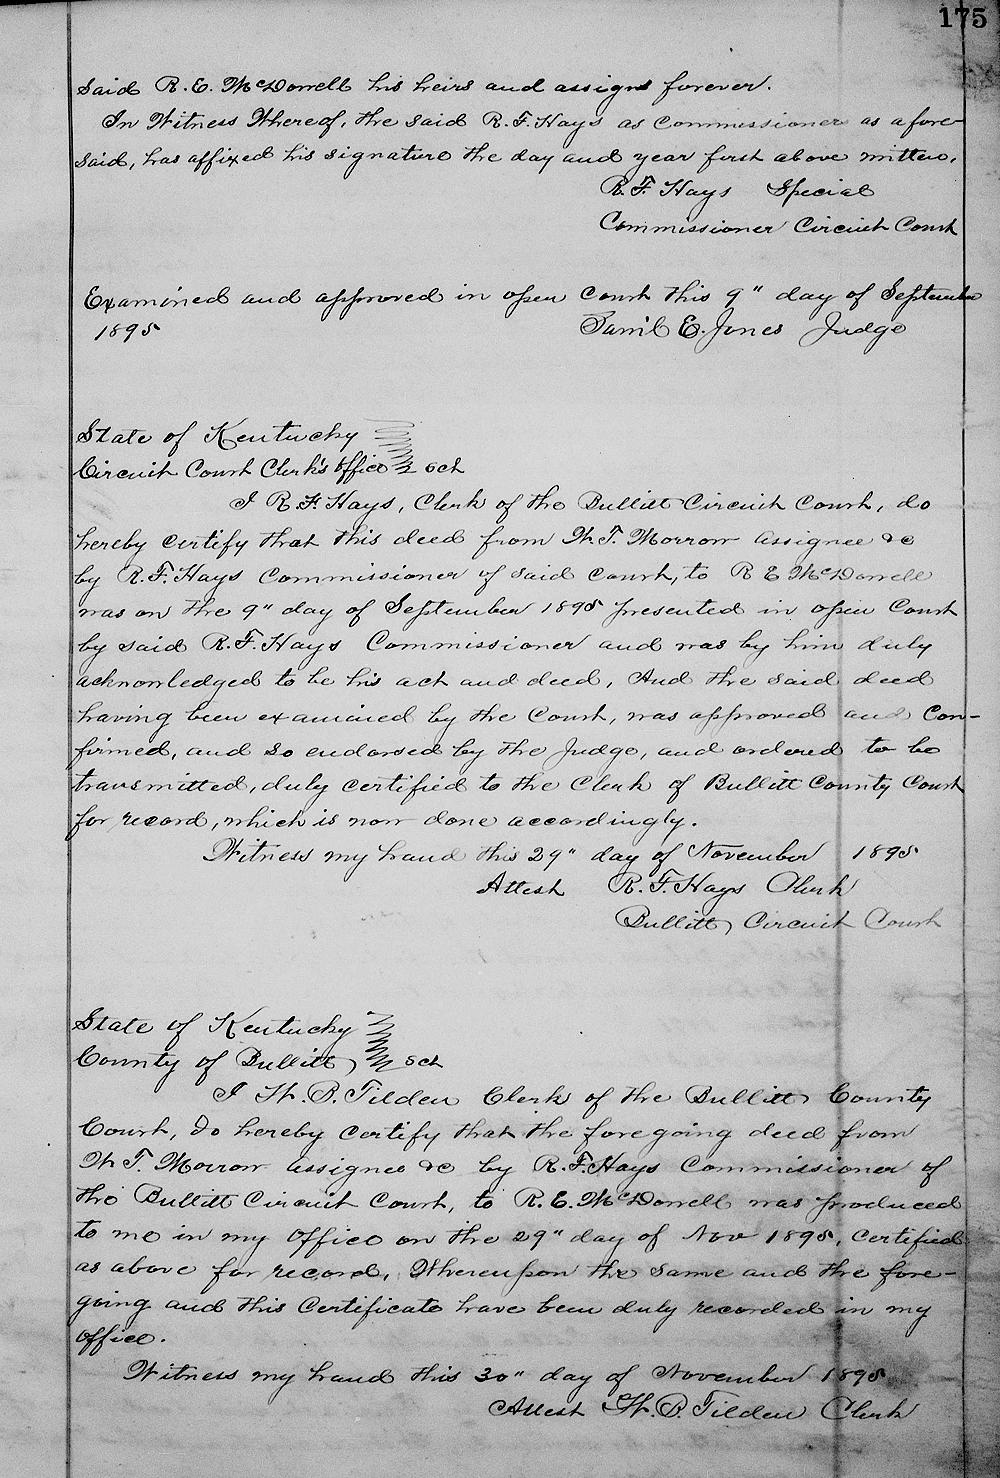 175
said R. E. McDowell his heirs and assigns forever.
In Witness Whereof, the said R. F. Hays as Commissioner as afore-
said, has affixed his signature the day and year first above written.
R. F. Hays Special
Commissioner Circuit Court
Examined and approved in open Court this 9" day of September
1895 Saml E. Jones Judge
State of Kentucky
Circuit Court Clerk's office Sct
I R. F. Hays, Clerk of the Bullitt Circuit Court, do
hereby certify that this deed from W. T. Morrow assignee &c
by R. F. Hays Commissioner of said Court, to R E McDowell
was on the 9" day of September 1895 presented in open Court
by said R. F. Hays Commissioner and was by him duly
acknowledged to be his act and deed, And the said deed
having been examined by the Court, was approved and Con-
firmed, and so endorsed by the Judge, and ordered to be
transmitted, duly certified to the Clerk of Bullitt County Court
for record, which is now done accordingly.
Witness my hand this 29" day of November 1895
Attest R. F. Hays Clerk
Bullitt Circuit Court
State of Kentucky
County of Bullitt Sct
I W. B. Tilden Clerk of the Bullitt County
Court, do hereby certify that the foregoing deed from
W T. Morrow assignee &c by R. F. Hays Commissioner of
the Bullitt Circuit Court, to R. E. McDowell was produced
to me in my office on the 29" day of Nov 1895, certified
as above for record, Whereupon the same and the fore-
going and this Certificate have been duly recorded in my
office.
Witness my hand this 30" day of November 1895
Attest W. B. Tilden Clerk